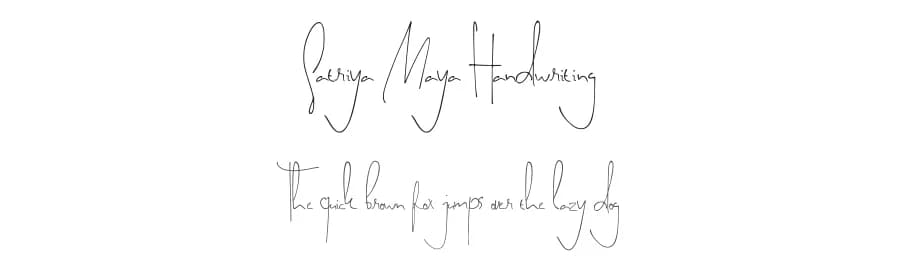 Satriya Maya Handwriting
The quick brown fox jumps over the lazy dog